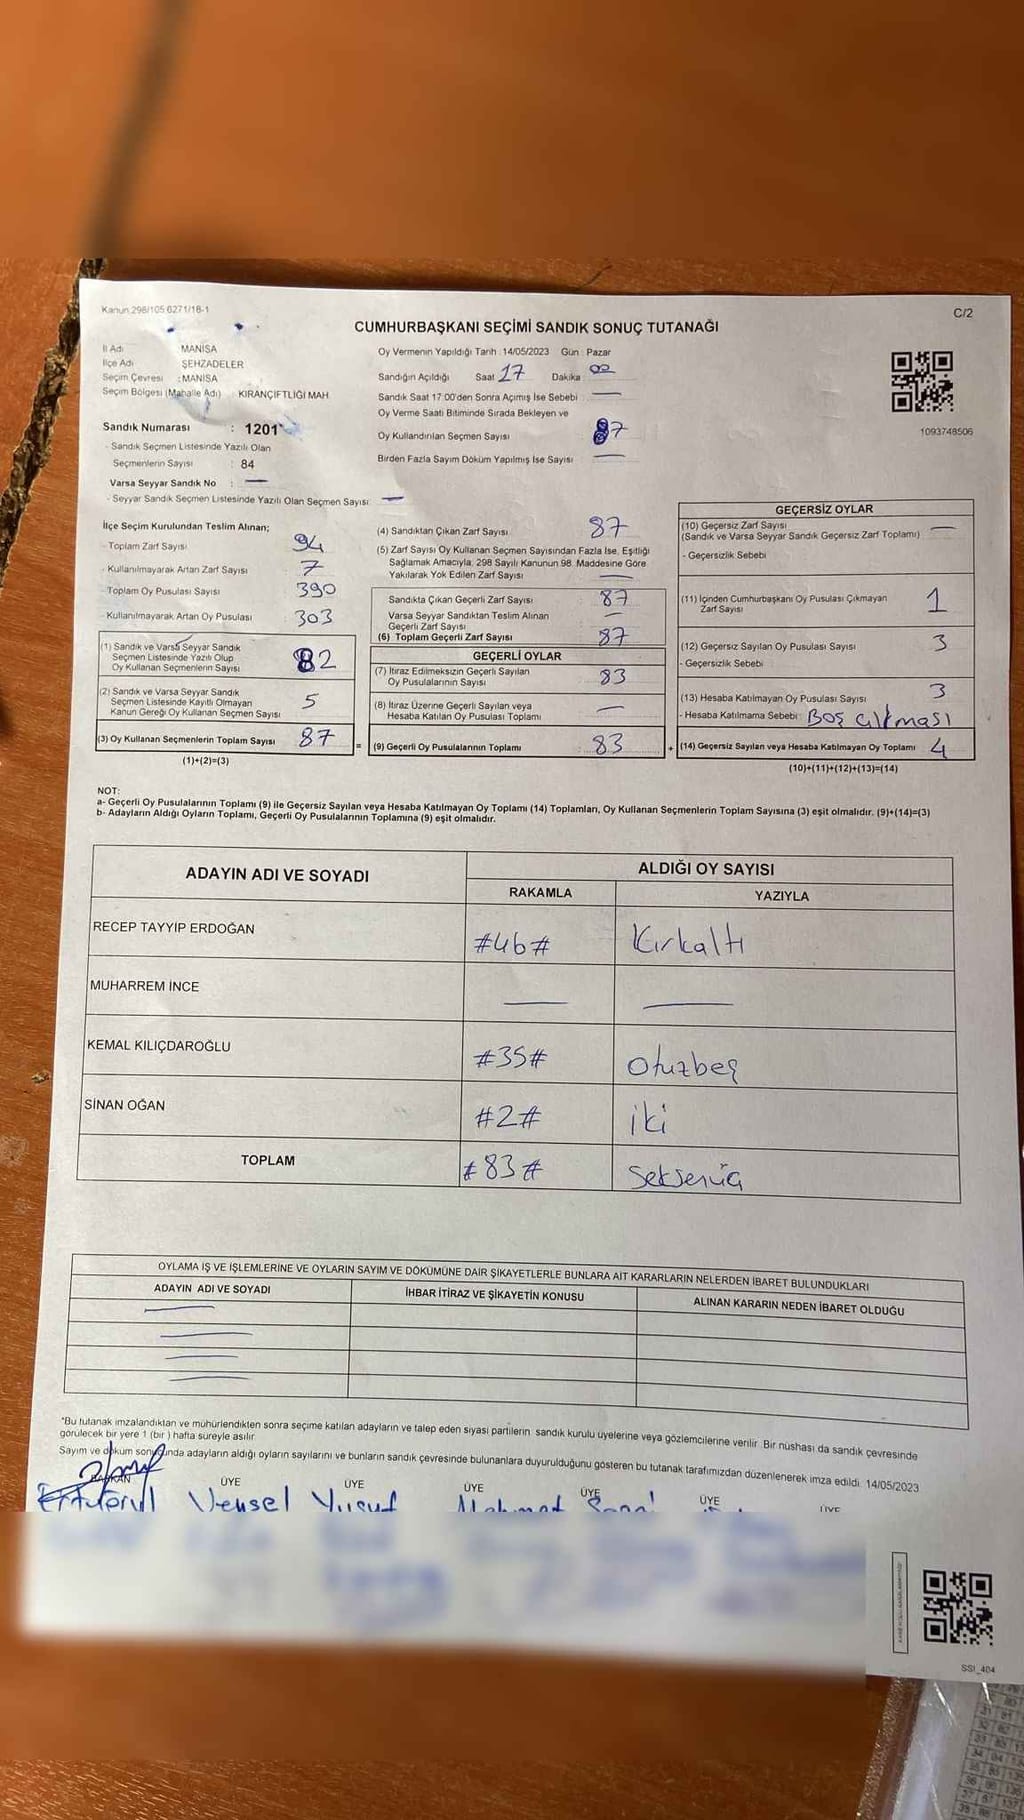 Kanun 298/105 6271/18-1
C/2
CUMHURBAŞKANI SEÇİMİ SANDIK SONUÇ TUTANAĞI
İl Adı : MANİSA
İlçe Adı : ŞEHZADELER
Seçim Çevresi : MANİSA
Seçim Bölgesi (Mahalle Adı) : KIRANÇİFTLİĞİ MAH
Sandık Numarası : 1201
- Sandık Seçmen Listesinde Yazılı Olan
Seçmenlerin Sayısı : 84
Varsa Seyyar Sandık No : —
- Seyyar Sandık Seçmen Listesinde Yazılı Olan Seçmen Sayısı: —
Oy Vermenin Yapıldığı Tarih : 14/05/2023 Gün : Pazar
Sandığın Açıldığı Saat 17 Dakika 02
Sandık Saat 17:00'den Sonra Açılmış İse Sebebi —
Oy Verme Saati Bitiminde Sırada Bekleyen ve
Oy Kullandırılan Seçmen Sayısı 87
Birden Fazla Sayım Döküm Yapılmış İse Sayısı —
1093748506
İlçe Seçim Kurulundan Teslim Alınan;
- Toplam Zarf Sayısı 94
- Kullanılmayarak Artan Zarf Sayısı 7
- Toplam Oy Pusulası Sayısı 390
- Kullanılmayarak Artan Oy Pusulası 303
(1) Sandık ve Varsa Seyyar Sandık
Seçmen Listesinde Yazılı Olup
Oy Kullanan Seçmenlerin Sayısı 82
(2) Sandık ve Varsa Seyyar Sandık
Seçmen Listesinde Kayıtlı Olmayan
Kanun Gereği Oy Kullanan Seçmen Sayısı 5
(3) Oy Kullanan Seçmenlerin Toplam Sayısı 87 =
(1)+(2)=(3)
(4) Sandıktan Çıkan Zarf Sayısı 87
(5) Zarf Sayısı Oy Kullanan Seçmen Sayısından Fazla İse, Eşitliği
Sağlamak Amacıyla, 298 Sayılı Kanunun 98. Maddesine Göre
Yakılarak Yok Edilen Zarf Sayısı —
Sandıkta Çıkan Geçerli Zarf Sayısı 87
Varsa Seyyar Sandıktan Teslim Alınan
Geçerli Zarf Sayısı —
(6) Toplam Geçerli Zarf Sayısı 87
GEÇERLİ OYLAR
(7) İtiraz Edilmeksizin Geçerli Sayılan
Oy Pusulalarının Sayısı 83
(8) İtiraz Üzerine Geçerli Sayılan veya
Hesaba Katılan Oy Pusulası Toplamı —
(9) Geçerli Oy Pusulalarının Toplamı : 83 +
GEÇERSİZ OYLAR
(10) Geçersiz Zarf Sayısı —
(Sandık ve Varsa Seyyar Sandık Geçersiz Zarf Toplamı)
- Geçersizlik Sebebi
(11) İçinden Cumhurbaşkanı Oy Pusulası Çıkmayan
Zarf Sayısı 1
(12) Geçersiz Sayılan Oy Pusulası Sayısı 3
- Geçersizlik Sebebi
(13) Hesaba Katılmayan Oy Pusulası Sayısı 3
- Hesaba Katılmama Sebebi : Boş çıkması
(14) Geçersiz Sayılan veya Hesaba Katılmayan Oy Toplamı 4
(10)+(11)+(12)+(13)=(14)
NOT:
a- Geçerli Oy Pusulalarının Toplamı (9) ile Geçersiz Sayılan veya Hesaba Katılmayan Oy Toplamı (14) Toplamları, Oy Kullanan Seçmenlerin Toplam Sayısına (3) eşit olmalıdır. (9)+(14)=(3)
b- Adayların Aldığı Oyların Toplamı, Geçerli Oy Pusulalarının Toplamına (9) eşit olmalıdır.
ADAYIN ADI VE SOYADI
ALDIĞI OY SAYISI
RAKAMLA YAZIYLA
RECEP TAYYİP ERDOĞAN #46# Kırkaltı
MUHARREM İNCE — —
KEMAL KILIÇDAROĞLU #35# Otuzbeş
SİNAN OĞAN #2# iki
TOPLAM #83# Seksenüç
OYLAMA İŞ VE İŞLEMLERİNE VE OYLARIN SAYIM VE DÖKÜMÜNE DAİR ŞİKAYETLERLE BUNLARA AİT KARARLARIN NELERDEN İBARET BULUNDUKLARI
ADAYIN ADI VE SOYADI İHBAR İTİRAZ VE ŞİKAYETİN KONUSU ALINAN KARARIN NEDEN İBARET OLDUĞU
*Bu tutanak imzalandıktan ve mühürlendikten sonra seçime katılan adayların ve talep eden siyasi partilerin sandık kurulu üyelerine veya gözlemcilerine verilir. Bir nüshası da sandık çevresinde
görülecek bir yere 1 (bir) hafta süreyle asılır.
Sayım ve döküm sonucunda adayların aldığı oyların sayılarını ve bunların sandık çevresinde bulunanlara duyurulduğunu gösteren bu tutanak tarafımızdan düzenlenerek imza edildi. 14/05/2023
BAŞKAN ÜYE ÜYE ÜYE ÜYE ÜYE ÜYE
Ertuğrul Veysel Yusuf Mehmet
SSI_404